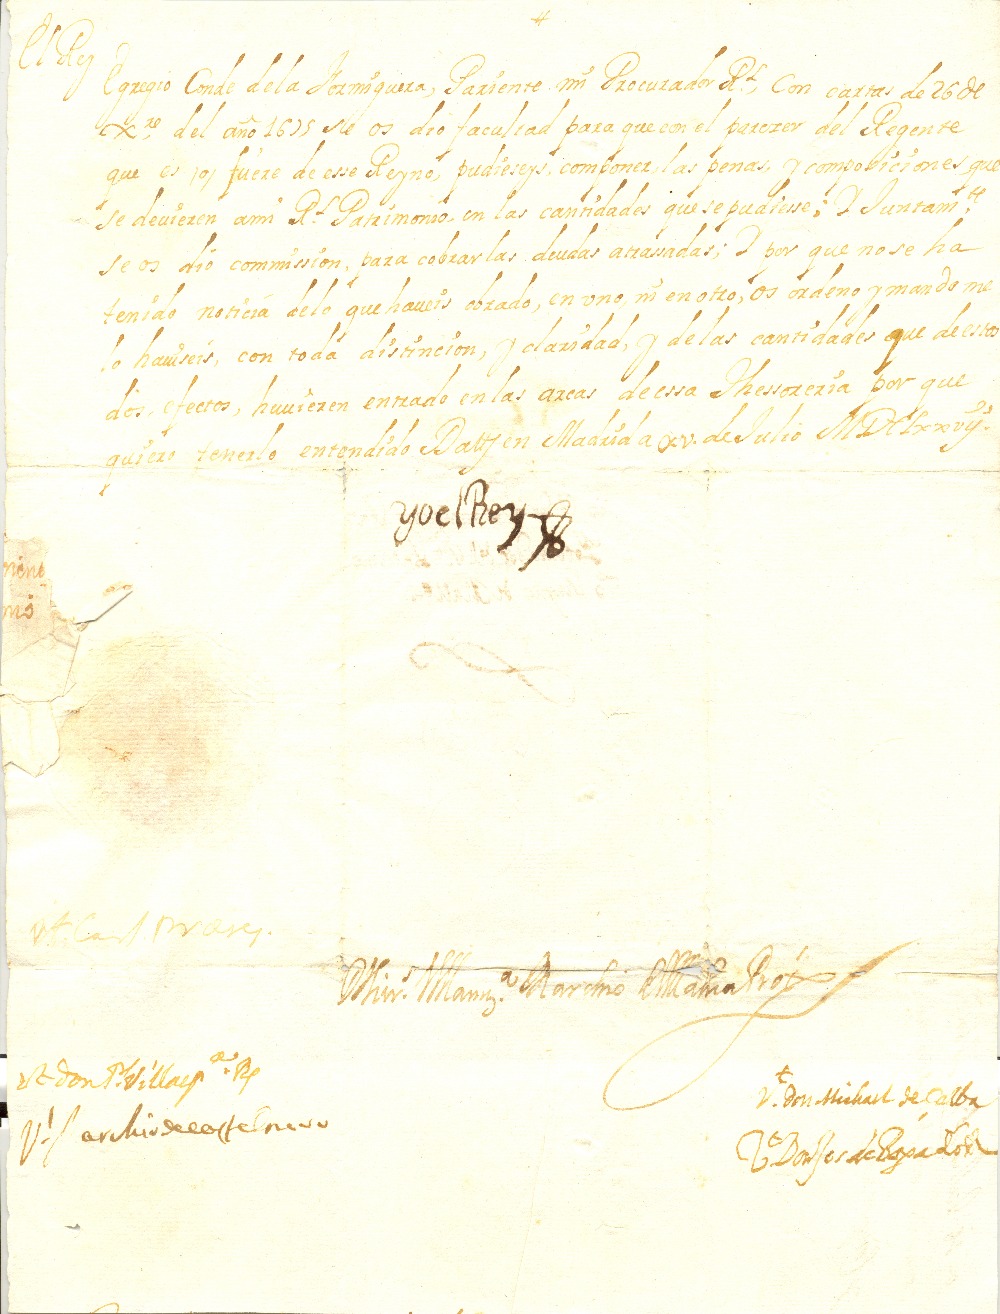 El Rey
Egregio Conde de la Formiguera, Pariente mi Procurador Rl. Con cartas de 26 de
Xre. del año 1675 se os dió facultad para que con el parezer del Regente
que es, o, fuere de esse Reyno, pudieseys, componer, las penas, y composiciones que
se devieren a mi Rl. Patrimonio, en las cantidades que se pudiesse; Y Juntamte.
se os dio commission, para cobrar las deudas atrasadas; Y por que no se ha
tenido noticia de lo que haveis cobrado, en uno, ni en otro, os ordeno y mando me
lo haviseis, con toda distincion, y claridad, y de las cantidades que de estos
dos, efectos, huvieren entrado en las arcas de essa Thessoreria por que
quiero tener lo entendido Datt. en Madrid a xv. de Julio MDCLxxvij.
yo el Rey
Marchio
Prot.
Vt. don Villacp. Rs
Vt. don Michael de Calba
Vt. Marchio de Castelnovo